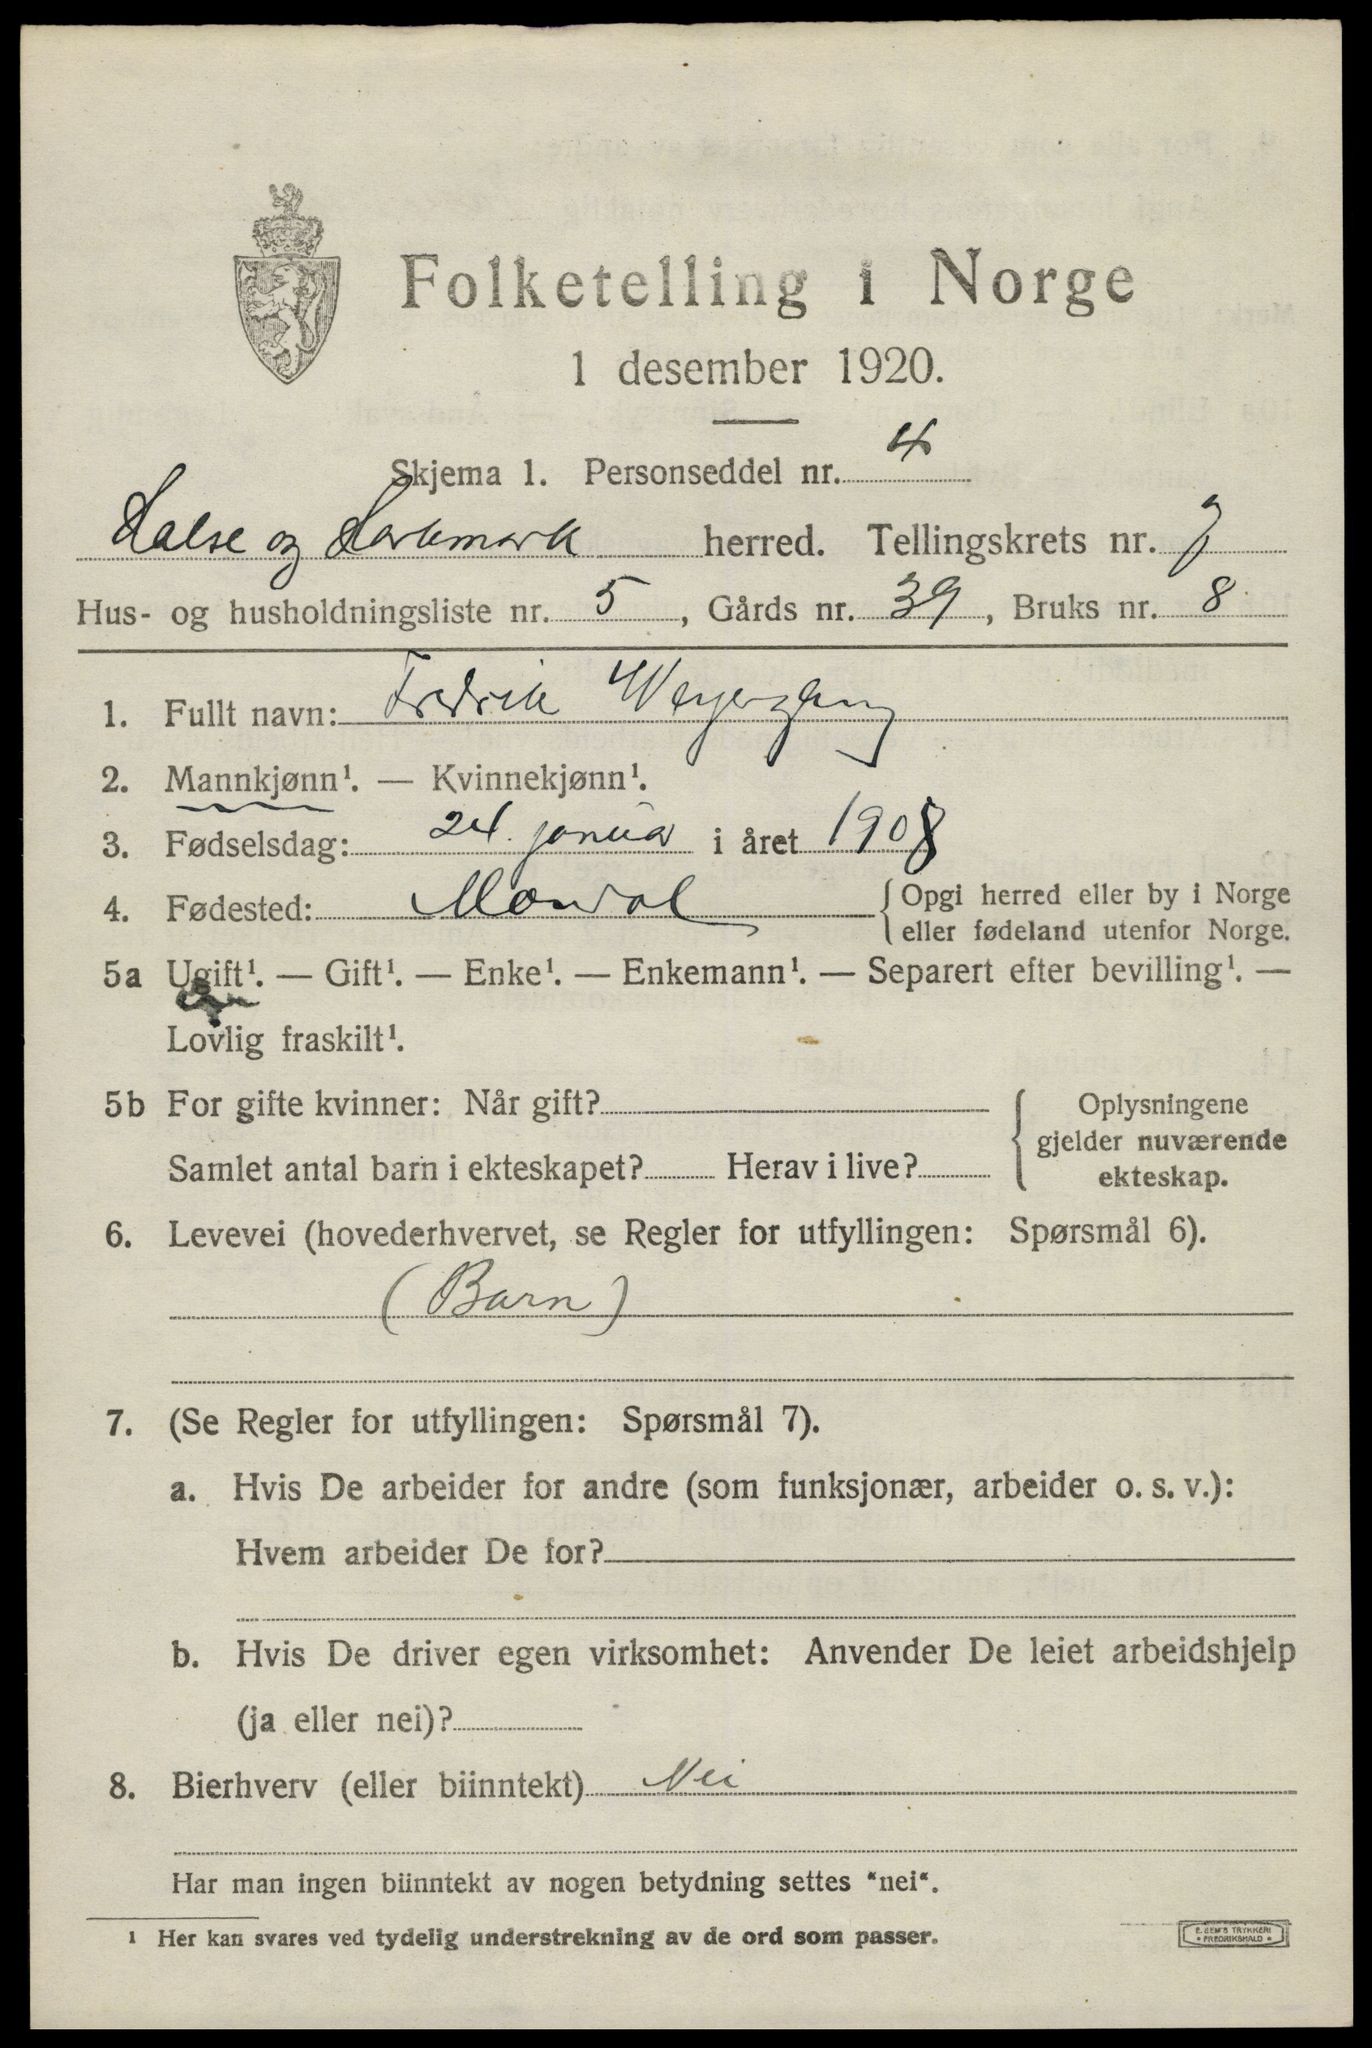 Folketelling i Norge
1 desember 1920.
Skjema 1. Personseddel nr. 4
Halse og Harkmark herred. Tellingskrets nr. 7
Hus- og husholdningsliste nr. 5, Gårds nr. 39, Bruks nr. 8
1. Fullt navn: Fredrik Weyergang
2. Mannkjønn¹. — Kvinnekjønn¹.
3. Fødselsdag: 24. januar i året 1908
4. Fødested: Mandal { Opgi herred eller by i Norge
eller fødeland utenfor Norge.
5a Ugift¹. — Gift¹. — Enke¹. — Enkemann¹. — Separert efter bevilling¹. —
Lovlig fraskilt¹.
5b For gifte kvinner: Når gift?
Samlet antal barn i ekteskapet? Herav i live?
{ Oplysningene
gjelder nuværende
ekteskap.
6. Levevei (hovederhvervet, se Regler for utfyllingen: Spørsmål 6).
(Barn)
7. (Se Regler for utfyllingen: Spørsmål 7).
a. Hvis De arbeider for andre (som funksjonær, arbeider o. s. v.):
Hvem arbeider De for?
b. Hvis De driver egen virksomhet: Anvender De leiet arbeidshjelp
(ja eller nei)?
8. Bierhverv (eller biinntekt) Nei
Har man ingen biinntekt av nogen betydning settes "nei".
¹ Her kan svares ved tydelig understrekning av de ord som passer.
E. SEM'S TRYKKERI
* FREDRIKSHALD *